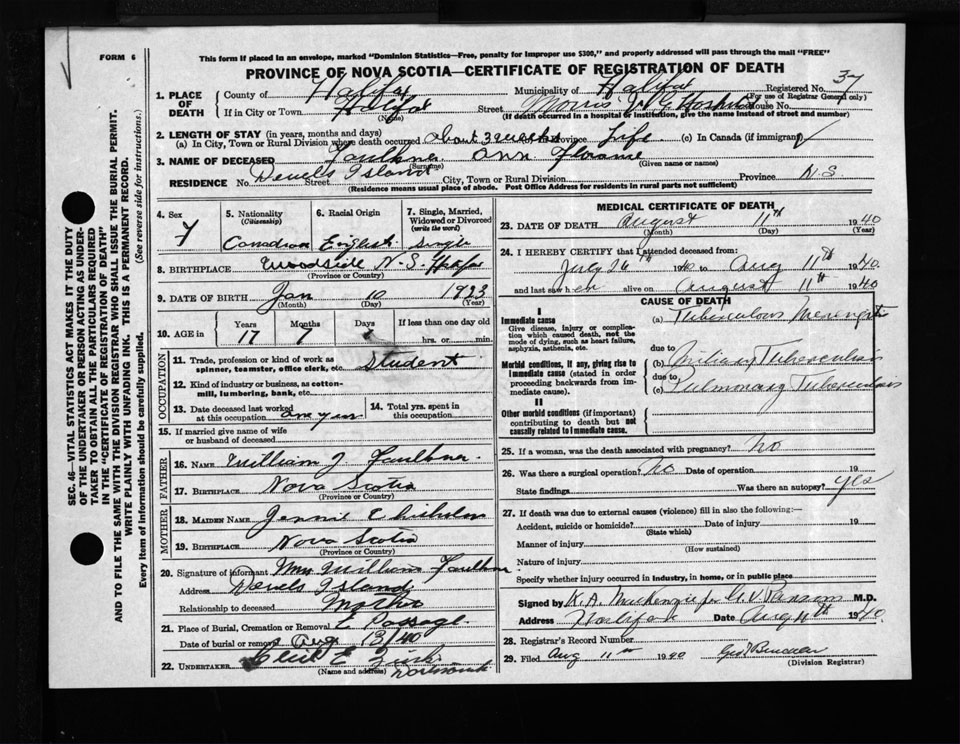 FORM 6
This form if placed in an envelope, marked "Dominion Statistics—Free, penalty for improper use $300," and properly addressed will pass through the mail "FREE"
PROVINCE OF NOVA SCOTIA—CERTIFICATE OF REGISTRATION OF DEATH
SEC. 46—VITAL STATISTICS ACT MAKES IT THE DUTY
OF THE UNDERTAKER OR PERSON ACTING AS UNDER-
TAKER TO OBTAIN ALL THE PARTICULARS REQUIRED
IN THE "CERTIFICATE OF REGISTRATION OF DEATH"
AND TO FILE THE SAME WITH THE DIVISION REGISTRAR WHO SHALL ISSUE THE BURIAL PERMIT.
WRITE PLAINLY WITH UNFADING INK. THIS IS A PERMANENT RECORD.
Every item of information should be carefully supplied. (See reverse side for instructions.)
1. PLACE OF DEATH County of Halifax Municipality of Halifax Registered No. 37
(For use of Registrar General only)
If in City or Town Halifax (Name) Street Morris V. G. House No.
(If death occurred in a hospital or institution, give the name instead of street and number)
2. LENGTH OF STAY (in years, months and days)
(a) In City, Town or Rural Division where death occurred about 3 weeks (b) In Province Life (c) In Canada (if immigrant)
3. NAME OF DECEASED Faulkner (Surname) Ann (Given name or names)
RESIDENCE No. Devels Island Street City, Town or Rural Division Province N.S.
(Residence means usual place of abode. Post Office Address for residents in rural parts not sufficient)
4. Sex F
5. Nationality (Citizenship) Canadian
6. Racial Origin English
7. Single, Married, Widowed or Divorced (write the word) Single
8. BIRTHPLACE Woodside N.S. Halifax
(Province or Country)
9. DATE OF BIRTH Jan (Month) 10 (Day) 1923 (Year)
10. AGE in Years 17 Months 7 Days If less than one day old hrs. or min.
OCCUPATION
11. Trade, profession or kind of work as spinner, teamster, office clerk, etc. Student
12. Kind of industry or business, as cotton-mill, lumbering, bank, etc.
13. Date deceased last worked at this occupation one year
14. Total yrs. spent in this occupation
15. If married give name of wife or husband of deceased
FATHER
16. NAME William J. Faulkner
17. BIRTHPLACE Nova Scotia
(Province or Country)
MOTHER
18. MAIDEN NAME Jennie Chisholm
19. BIRTHPLACE Nova Scotia
(Province or Country)
20. Signature of informant Mrs William Faulkner
Address Devels Island
Relationship to deceased Mother
21. Place of Burial, Cremation or Removal E Passage
Date of burial or removal Aug 13/40
22. UNDERTAKER
(Name and address) Dartmouth
MEDICAL CERTIFICATE OF DEATH
23. DATE OF DEATH August (Month) 11th (Day) 1940 (Year)
24. I HEREBY CERTIFY that I attended deceased from:
July 26th 1940 to Aug 11th 1940.
and last saw her alive on August 11th 1940
CAUSE OF DEATH
I
Immediate cause
Give disease, injury or complication which caused death, not the mode of dying, such as heart failure, asphyxia, asthenia, etc.
(a) Tuberculous Meningitis
due to
Morbid conditions, if any, giving rise to immediate cause (stated in order proceeding backwards from immediate cause).
(b) Miliary Tuberculosis
due to
(c) Pulmonary Tuberculosis
II
Other morbid conditions (if important) contributing to death but not causally related to immediate cause.
25. If a woman, was the death associated with pregnancy? No
26. Was there a surgical operation? No Date of operation 19
State findings Was there an autopsy? yes
27. If death was due to external causes (violence) fill in also the following:—
Accident, suicide or homicide? (State which) Date of injury 19
Manner of injury
(How sustained)
Nature of injury
Specify whether injury occurred in industry, in home, or in public place
Signed by K. A. MacKenzie for G. V. M.D.
Address Halifax Date Aug 11th 1940.
28. Registrar's Record Number
29. Filed Aug 11th 1940
(Division Registrar)